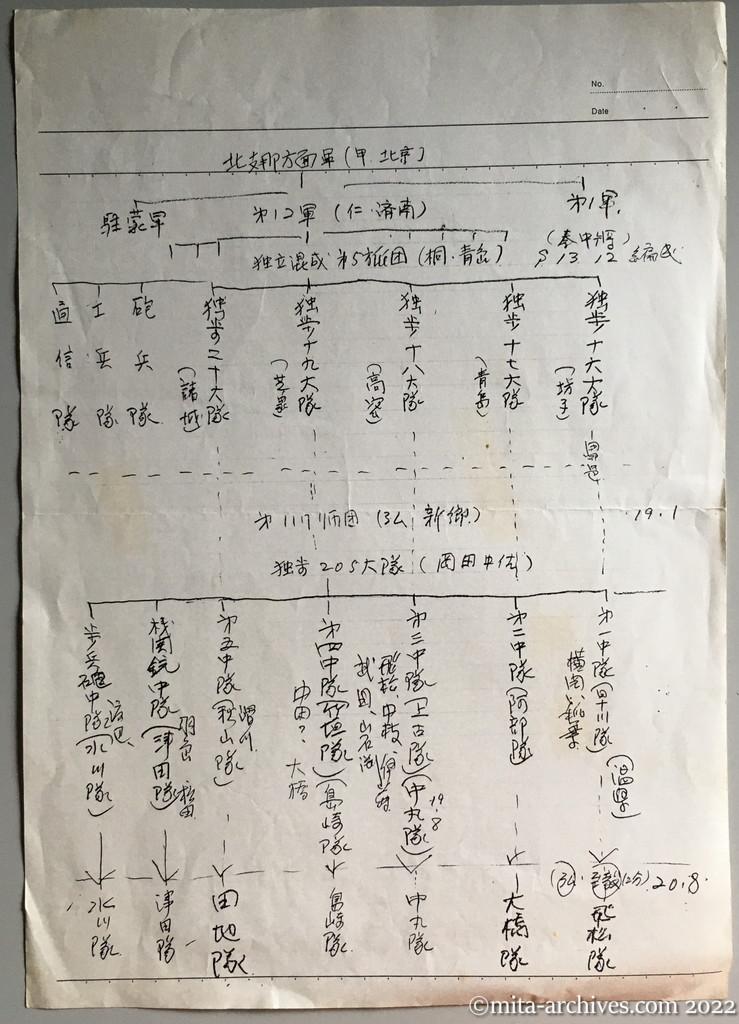 No.
Date
北支那方面軍(甲・北京)
第1軍
第12軍(仁・済南)
駐蒙軍
(泰中将)
S 13 12 編成
独立混成第5旅団(桐・青島)
独歩十六大隊
(坊子)
独歩十七大隊
(青島)
独歩十八大隊
(高密)
独歩十九大隊
(芝罘)
独歩二十大隊
(諸城)
砲兵隊
工兵隊
通信隊
19.1
第117師団(弘 新郷)
独歩205大隊(岡田中佐)
第一中隊(早川隊)
(温県)
第二中隊(阿部隊)
第三中隊
(中丸隊)
19.8
第四中隊
(島崎隊)
中田? 大橋
第五中隊(秋山隊)
滑川
機関銃中隊(津田隊)
羽島 松田
歩兵砲中隊(水川隊)
渡辺
20.8.
飛松隊
大橋隊
中丸隊
島崎隊
田地隊
津田隊
水川隊
©mita-archives.com 2022